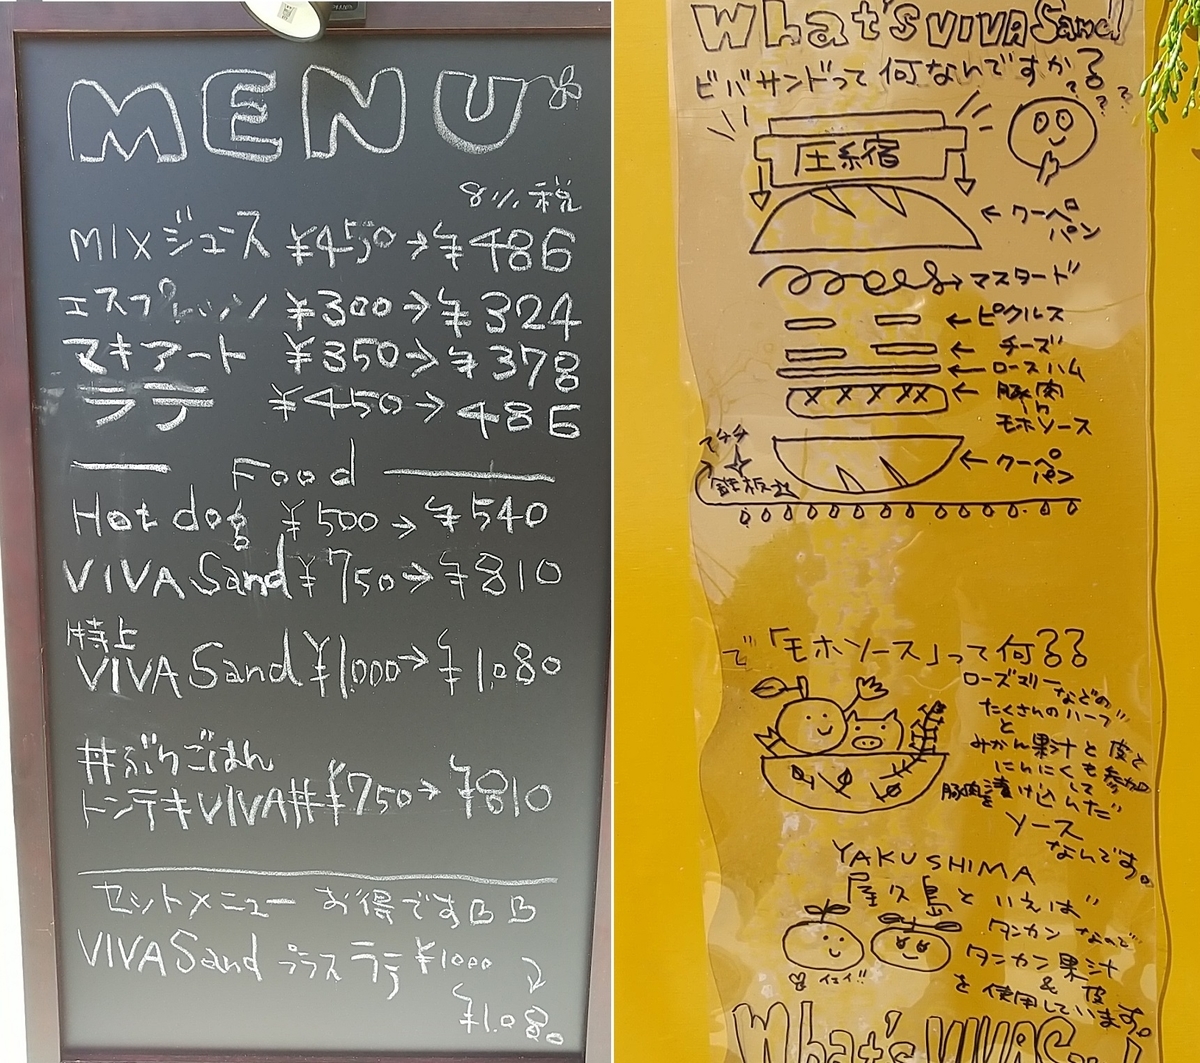 MENU
8%税
MIXジュース ¥450→¥486
エスプレッソ ¥300→¥324
マキアート ¥350→¥378
ラテ ¥450→486
Food
Hot dog ¥500→¥540
VIVA Sand ¥750→¥810
特上
VIVA Sand ¥1.000→¥1.080
丼ぶりごはん
トンテキVIVA丼 ¥750→¥810
セットメニュー お得です
VIVA Sand プラス ラテ ¥1000
¥1.080
What's VIVA Sand
ビバサンドって何なんですか???
圧縮
←クーペパン
→マスタード
←ピクルス
←チーズ
←ロースハム
←豚肉
in
モホソース
アチチ
鉄板
←クーペパン
で「モホソース」って何??
ローズマリーなどの
たくさんのハーブ
と
みかん果汁と皮で
にんにくも参加
して
豚肉を漬け込んだ
ソース
なんです。
YAKUSHIMA
屋久島といえば
タンカン なので
イエイ!!
タンカン果汁
&皮
を使用しています。
What's VIVA Sand